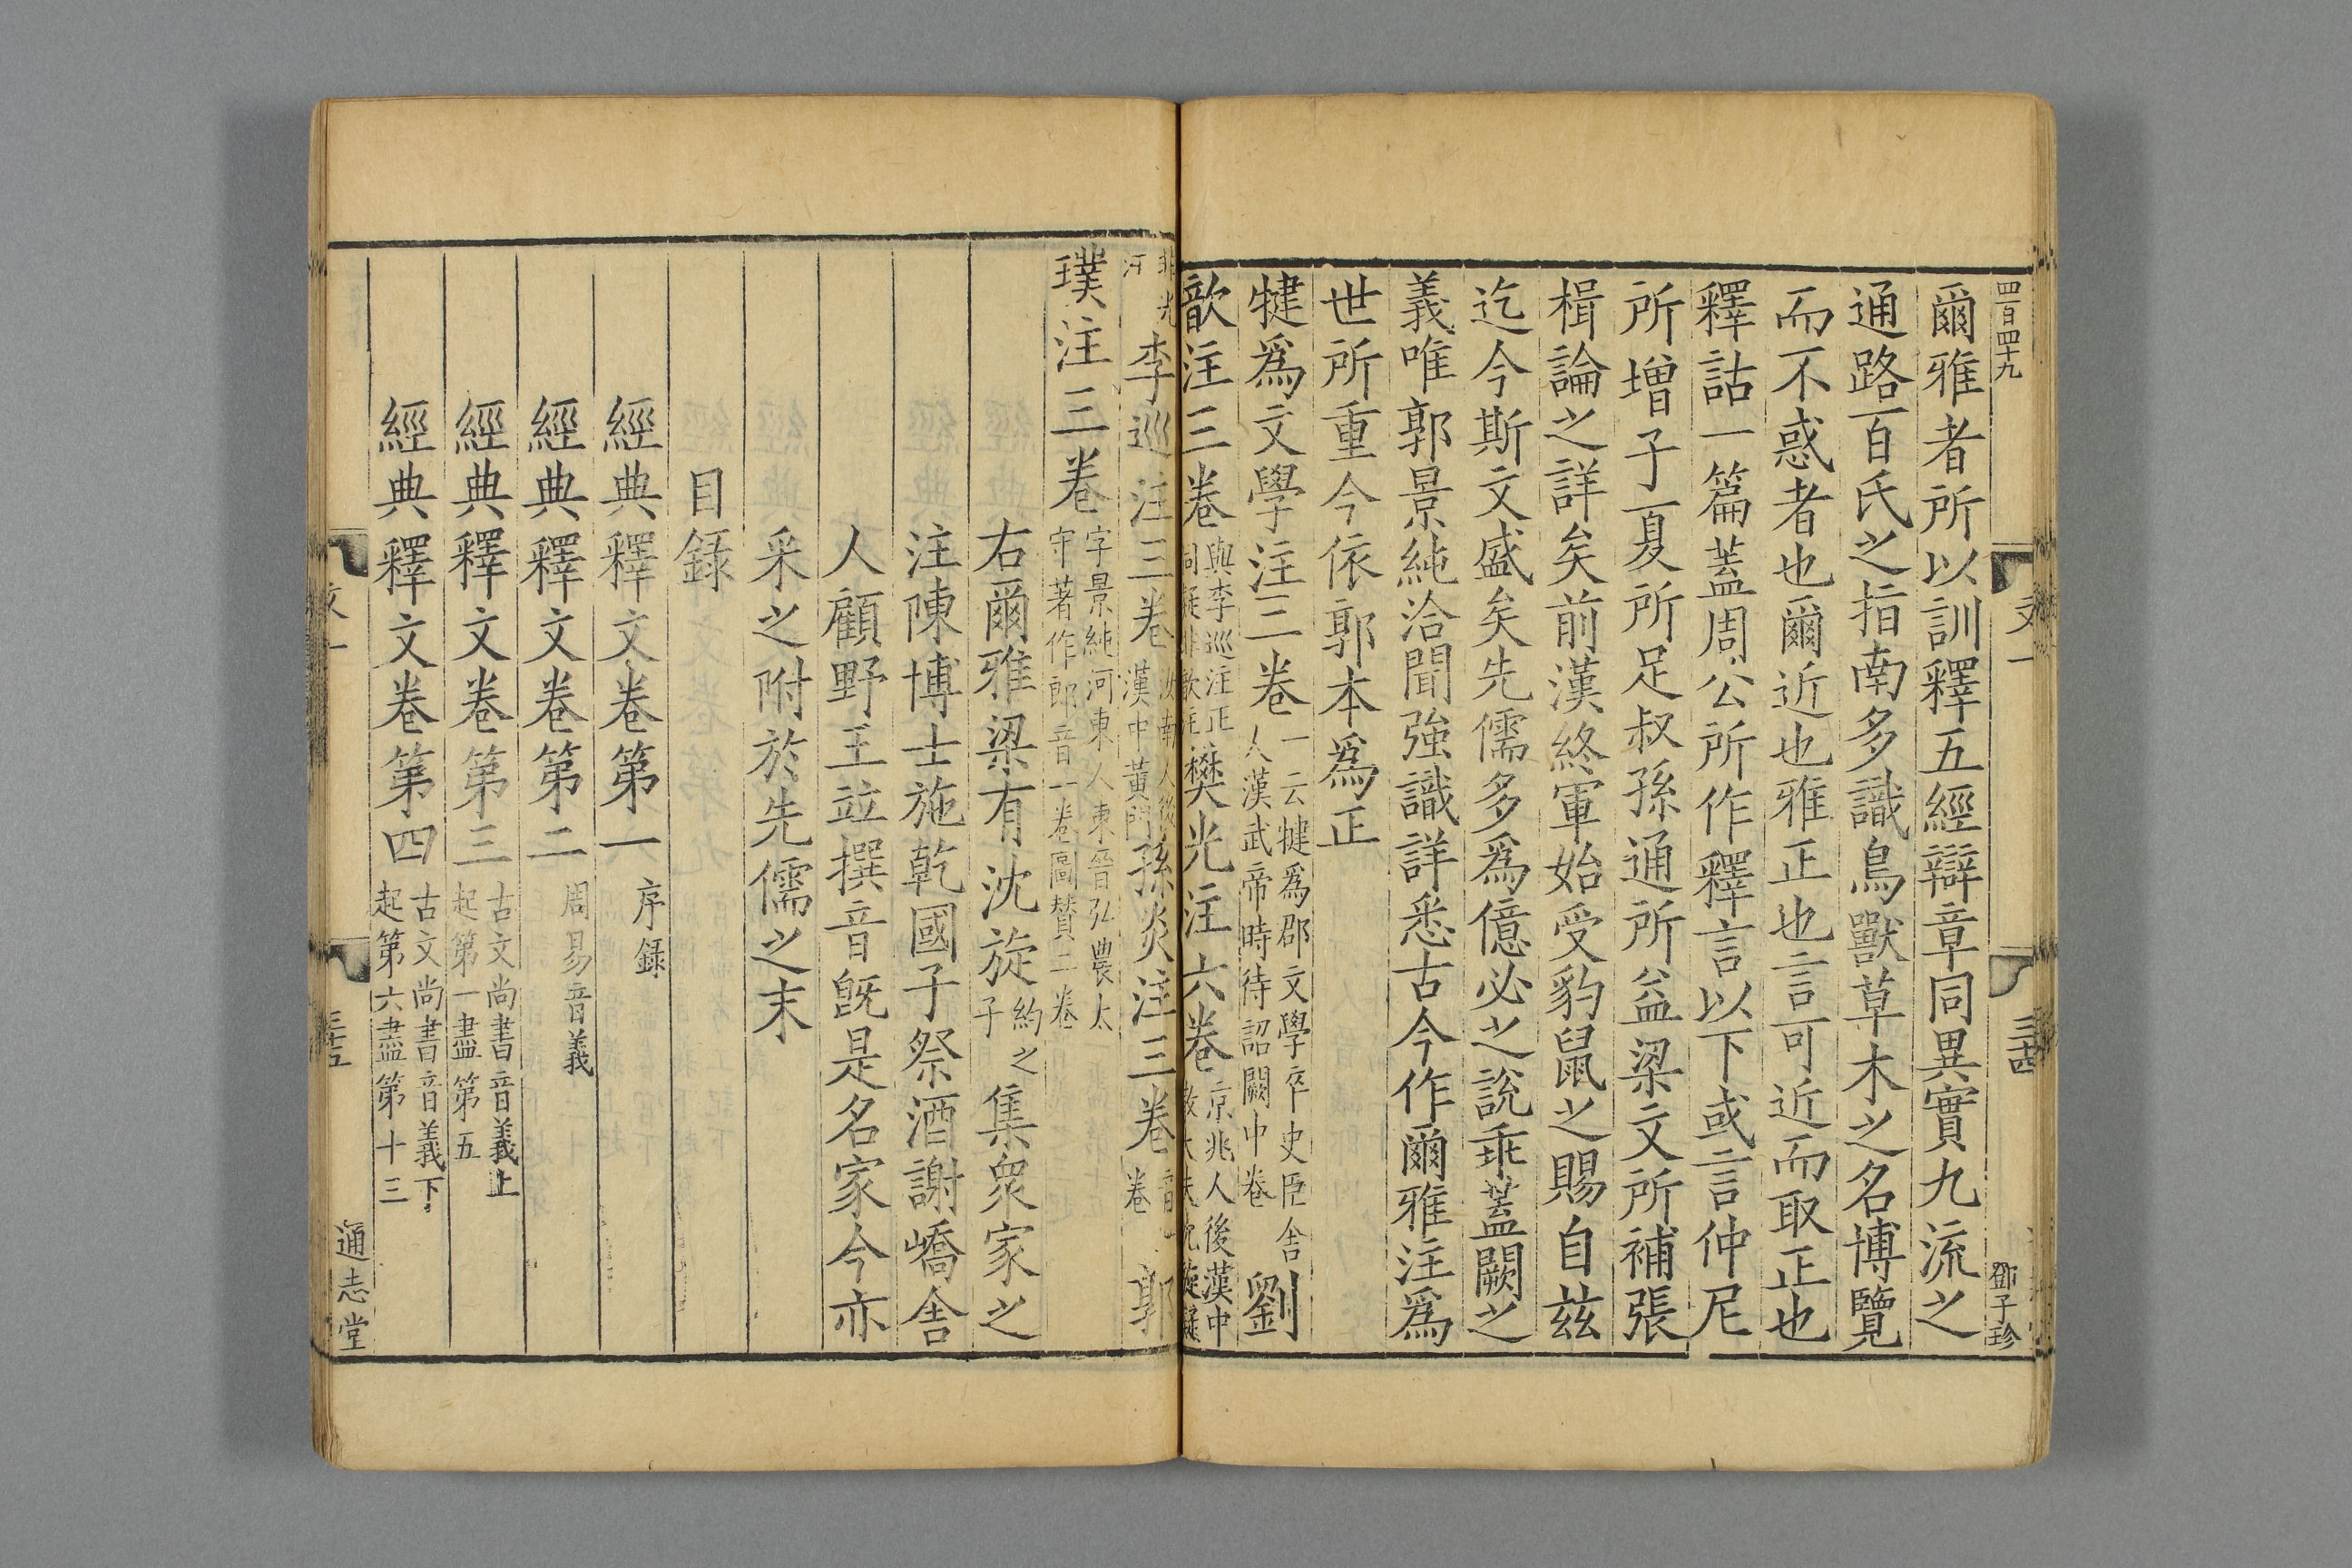 四百四十九
爾雅者所以訓釋五經辯章同異實九流之
通路百氏之指南多識鳥獸草木之名博覽
而不惑者也爾近也雅正也言可近而取正也
釋詁一篇蓋周公所作釋言以下或言仲尼
所增子夏所足叔孫通所益梁文所補張
楫論之詳矣前漢終軍始受豹鼠之賜自兹
迄今斯文盛矣先儒多爲億必之說乖蓋闕之
義唯郭景純洽聞強識詳悉古今作爾雅注爲
世所重今依郭本爲正
犍爲文學注三卷一云犍爲郡文學卒史臣舍人漢武帝時待詔闕中卷劉
歆注三卷與李巡注正同疑非歆注樊光注六卷京兆人後漢中散大夫沈旋疑
文一
三十四
鄧子珍
非光李巡注三卷汝南人後漢中黃門孫炎注三卷音一卷郭
璞注三卷字景純河東人東晉弘農太守著作郎音一卷圖贊二卷
右爾雅梁有沈旋約之子集衆家之
注陳博士施乾國子祭酒謝嶠舍
人顧野王竝撰音旣是名家今亦
采之附於先儒之末
目錄
經典釋文卷第一序録
經典釋文卷第二周易音義
經典釋文卷第三古文尚書音義上起第一盡第五
經典釋文卷第四古文尚書音義下起第六盡第十三
文一
三十五
通志堂